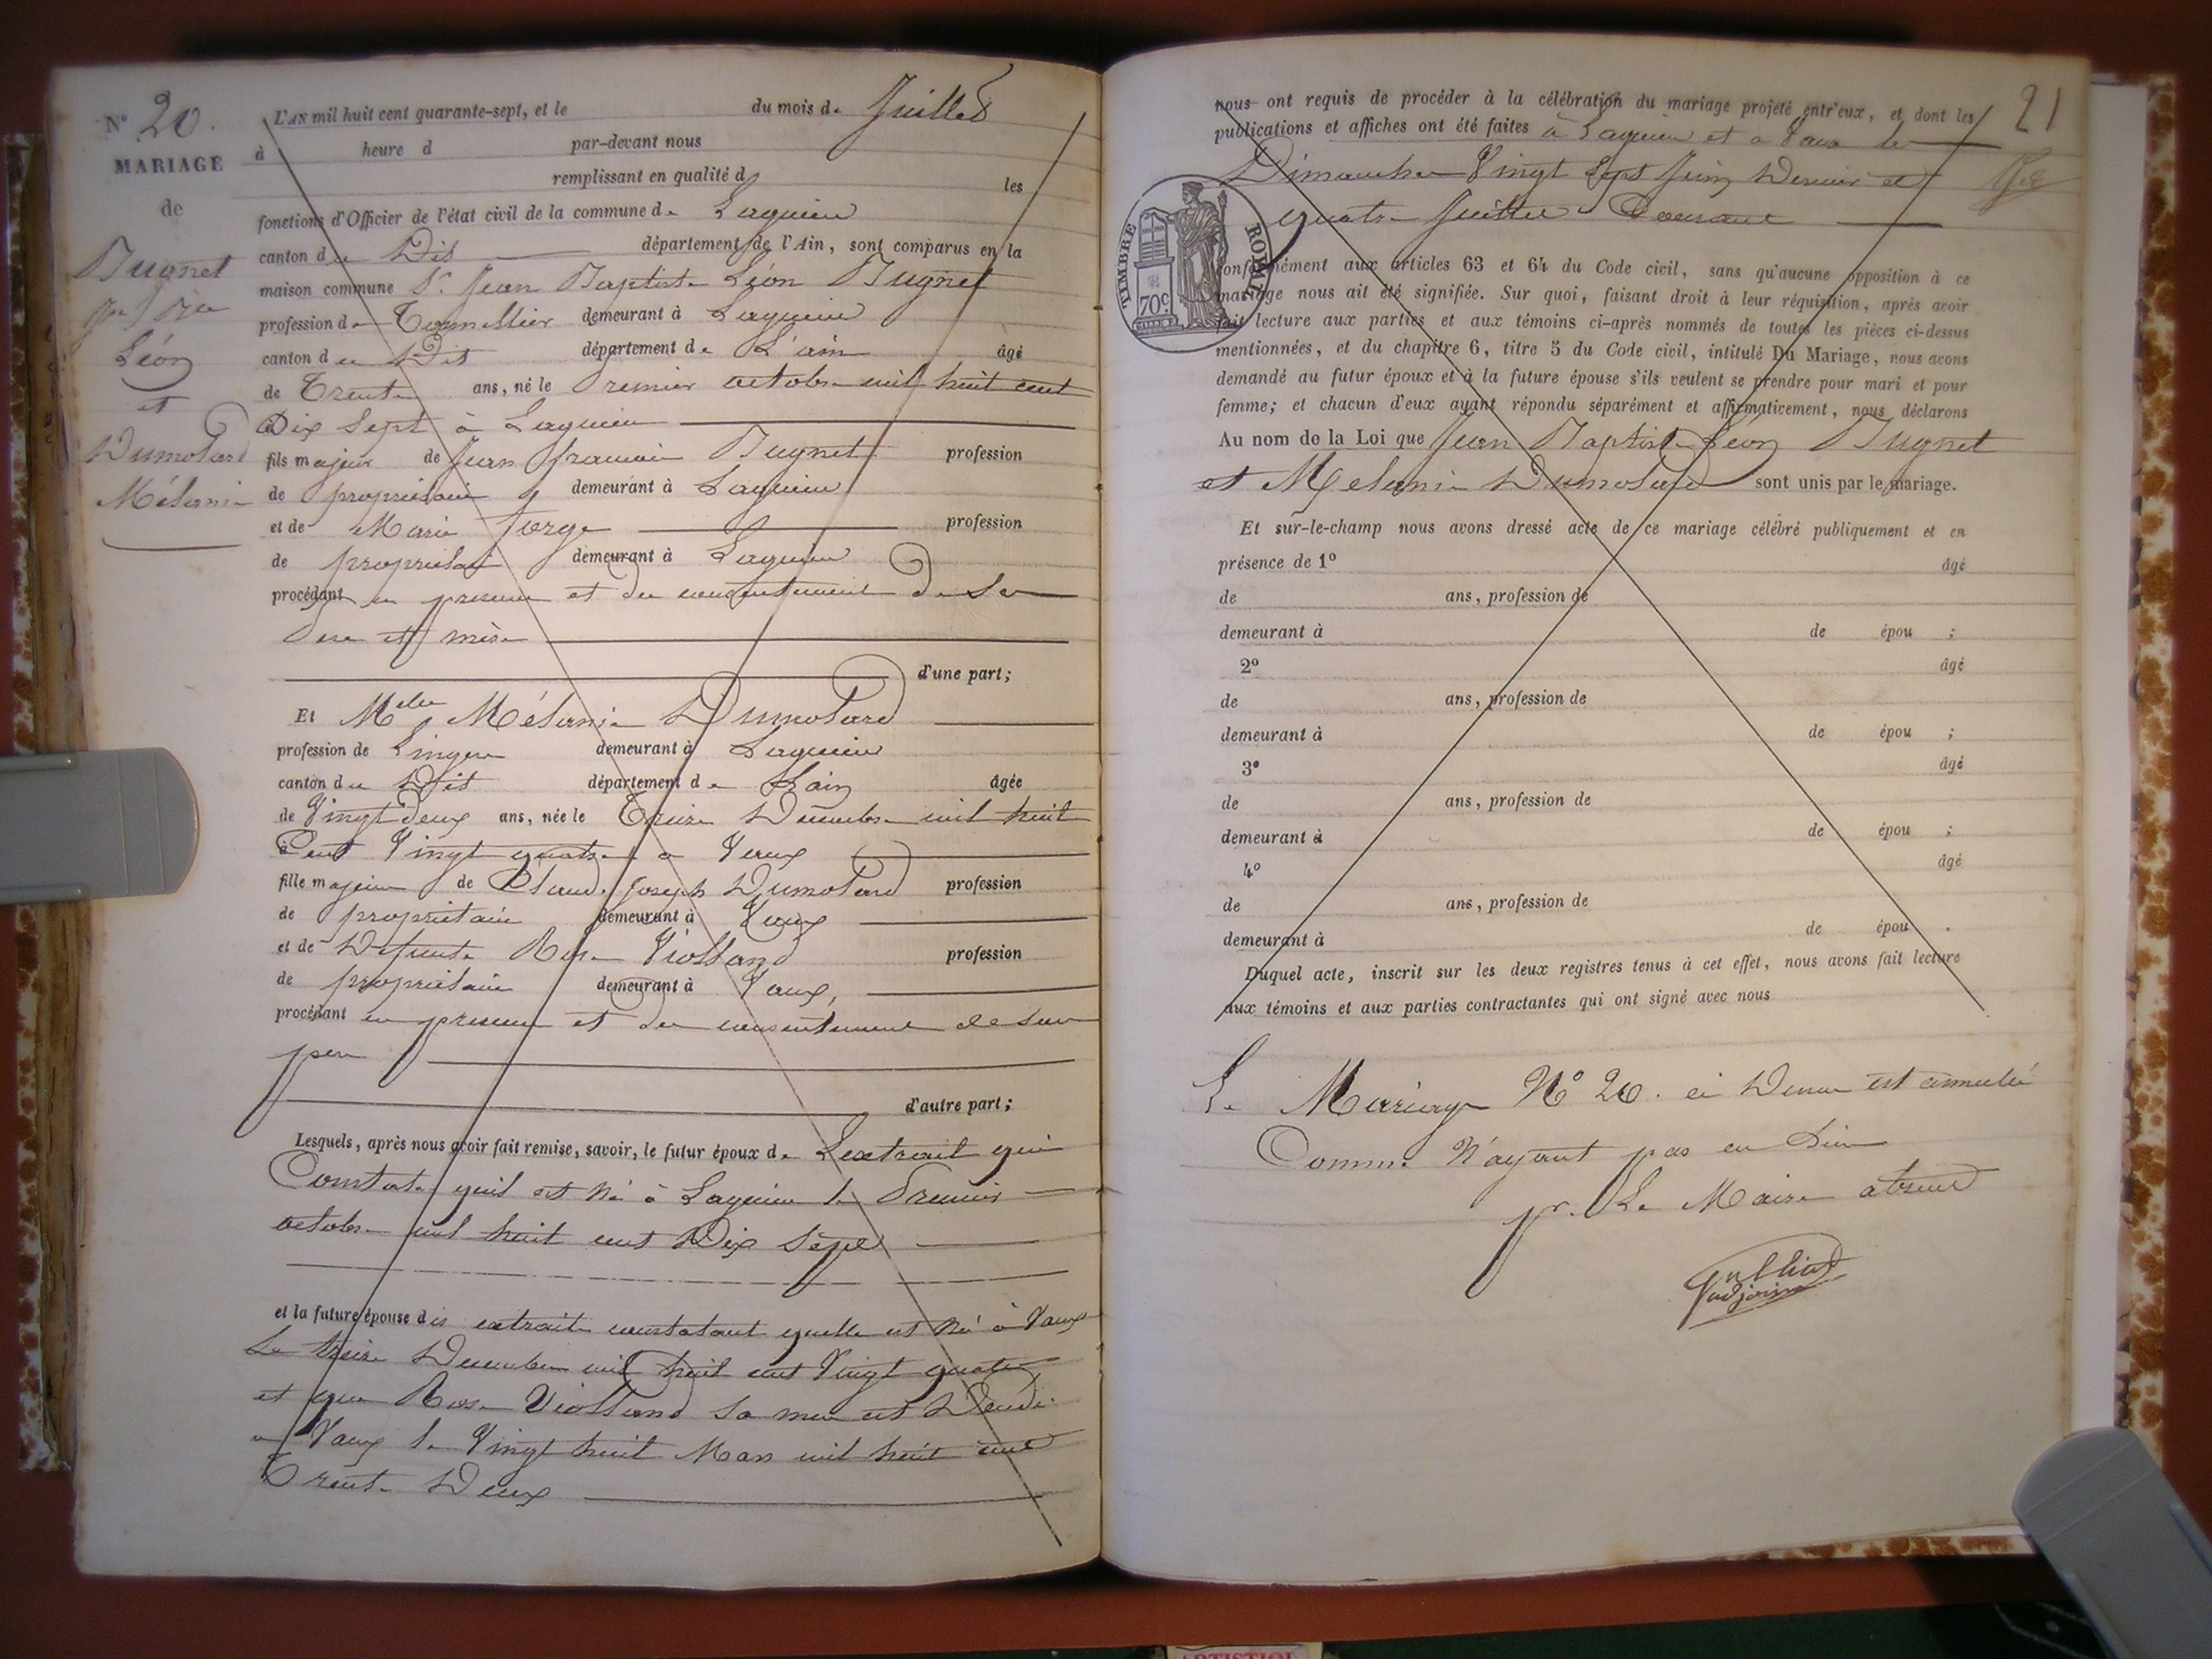 N° 20.
MARIAGE
de
Bugnet
Jn Bte
Léon
et
Dumolard
Mélanie
L'AN mil huit cent quarante-sept, et le du mois de Juillet
à heure d par-devant nous
remplissant en qualité d les
fonctions d'Officier de l'état civil de la commune de Lagnieu
canton du Dit département de l'Ain, sont comparus en la
maison commune Sr. Jean Baptiste Léon Bugnet
profession de Tonnellier demeurant à Lagnieu
canton du Dit département de L'ain âgé
de Trente ans, né le Premier octobre mil huit cent
Dix Sept à Lagnieu
fils majeur de Jean françois Bugnet profession
de propriétaire demeurant à Lagnieu
et de Marie profession
de propriétaire demeurant à Lagnieu
procédant en presence et du consentement de Ses
Pere et mère
d'une part;
Et Melle Mélanie Dumolard
profession de Lingere demeurant à Lagnieu
canton du Dit département de Lain âgée
de Vingt Deux ans, née le Treize Décembre mil huit
Cent Vingt quatre a Vaux
fille majeure de Claude Joseph Dumolard profession
de propriétaire demeurant à Vaux
et de Défunte Rose Violland profession
de propriétaire demeurant à Vaux,
procédant en presence et du consentement de son
pere
d'autre part;
Lesquels, après nous avoir fait remise, savoir, le futur époux de Lextrait qui
Constate quil est Né à Lagnieu le Premier
octobre mil huit cent Dix Sept
et la future épouse des extraits constatant quelle est Né à Vaux
Le treize Decembre mil huit cent Vingt quatre
et que Rose Violland sa mere est Décédé
a Vaux le Vingt huit Mars mil huit cent
Trente Deux
21
nous ont requis de procéder à la célébration du mariage projeté entr'eux, et dont les
publications et affiches ont été faites à Lagnieu et a Vaux les
Dimanches Vingt Sept Juin Dernier et
quatre Juillet Courant
TIMBRE ROYAL
70c.
conformément aux articles 63 et 64 du Code civil, sans qu'aucune opposition à ce
mariage nous ait été signifiée. Sur quoi, faisant droit à leur réquisition, après avoir
fait lecture aux parties et aux témoins ci-après nommés de toutes les pièces ci-dessus
mentionnées, et du chapitre 6, titre 5 du Code civil, intitulé Du Mariage, nous avons
demandé au futur époux et à la future épouse s'ils veulent se prendre pour mari et pour
femme; et chacun d'eux ayant répondu séparément et affirmativement, nous déclarons
Au nom de la Loi que Jean Baptiste Léon Bugnet
et Melanie Dumolard sont unis par le mariage.
Et sur-le-champ nous avons dressé acte de ce mariage célébré publiquement et en
présence de 1° âgé
de ans, profession de
demeurant à de épou ;
2° âgé
de ans, profession de
demeurant à de épou ;
3° âgé
de ans, profession de
demeurant à de épou ;
4° âgé
de ans, profession de
demeurant à de épou .
Duquel acte, inscrit sur les deux registres tenus à cet effet, nous avons fait lecture
aux témoins et aux parties contractantes qui ont signé avec nous
Le Mariage N° 20. ci Dessus est annulé
Comme N'ayant pas eu Lieu
pr. Le Maire absent
adjoint